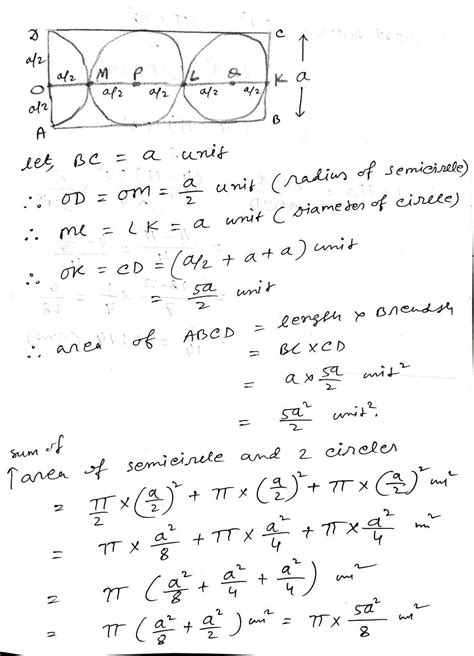 D C
a/2
a/2 M P L Q K a
O a/2 a/2 a/2 a/2
a/2
A B
let, BC = a unit
∴ OD = OM = a/2 unit (radius of semicircle)
∴ ML = LK = a unit (Diameter of circle)
∴ OK = CD = (a/2 + a + a) unit
= 5a/2 unit
∴ area of ABCD = length × Breadth
= BC × CD
= a × 5a/2 unit²
= 5a²/2 unit².
sum of
↑ area of semicircle and 2 circles
= π/2 × (a/2)² + π × (a/2)² + π × (a/2)² m²
= π × a²/8 + π × a²/4 + π × a²/4 m²
= π (a²/8 + a²/4 + a²/4) m²
= π (a²/8 + a²/2) m² = π × 5a²/8 m²